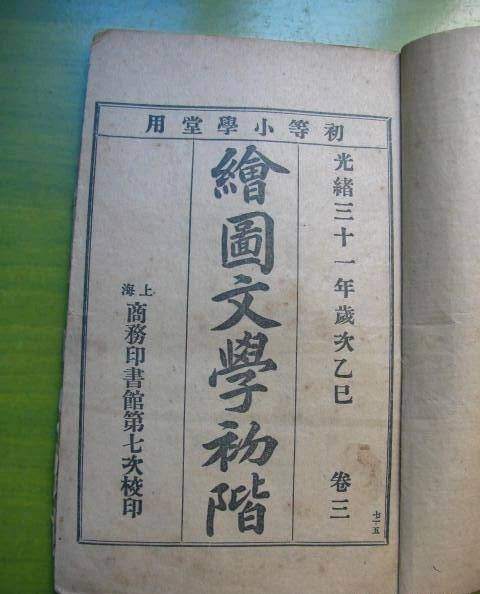 初等小學堂用
光緒三十一年歲次乙巳 卷三
繪圖文學初階
上海
商務印書館第七次校印
七一五